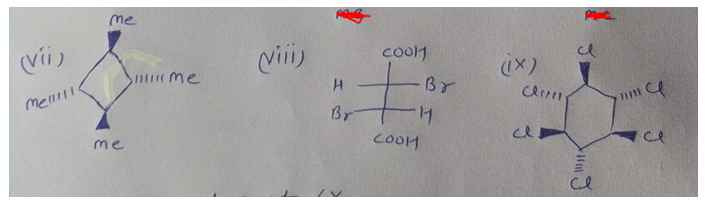 me
(vii)
me
me
me
(viii)
COOH
H Br
Br H
COOH
(ix)
Cl
Cl Cl
Cl Cl
Cl